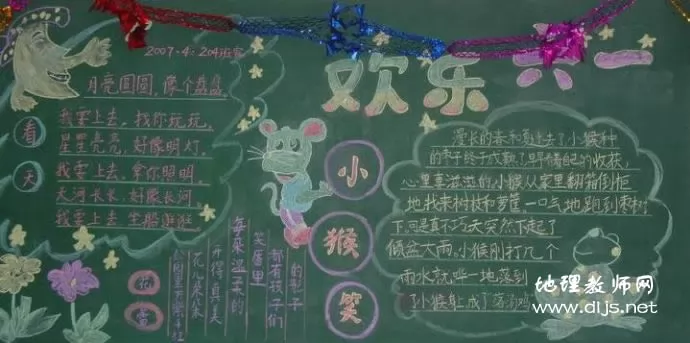 欢乐六一
2007.4.204班宣
月亮圆圆,像个盘盘
我要上去,找你玩玩,
星星亮亮,好像明灯,
我要上去,拿你照明。
天河长长,好像长河
我要上去 坐船逛逛
看天
小猴笑
漫长的春和夏过去了小猴种
的枣子终于成熟了
的收获,
心里喜滋滋的,小猴从家里翻箱倒柜
地找来树枝和箩筐,一口气地跑到枣树
下可是真不巧天突然下起了
倾盆大雨。小猴刚打几个
雨水就哗一地落到
了小猴身上成了落汤鸡
花蕾
公园里万紫千红
花儿朵朵
开得真美
每朵温柔的
笑蕾里
都有孩子们
的影子
地理教师网
www.dljs.net